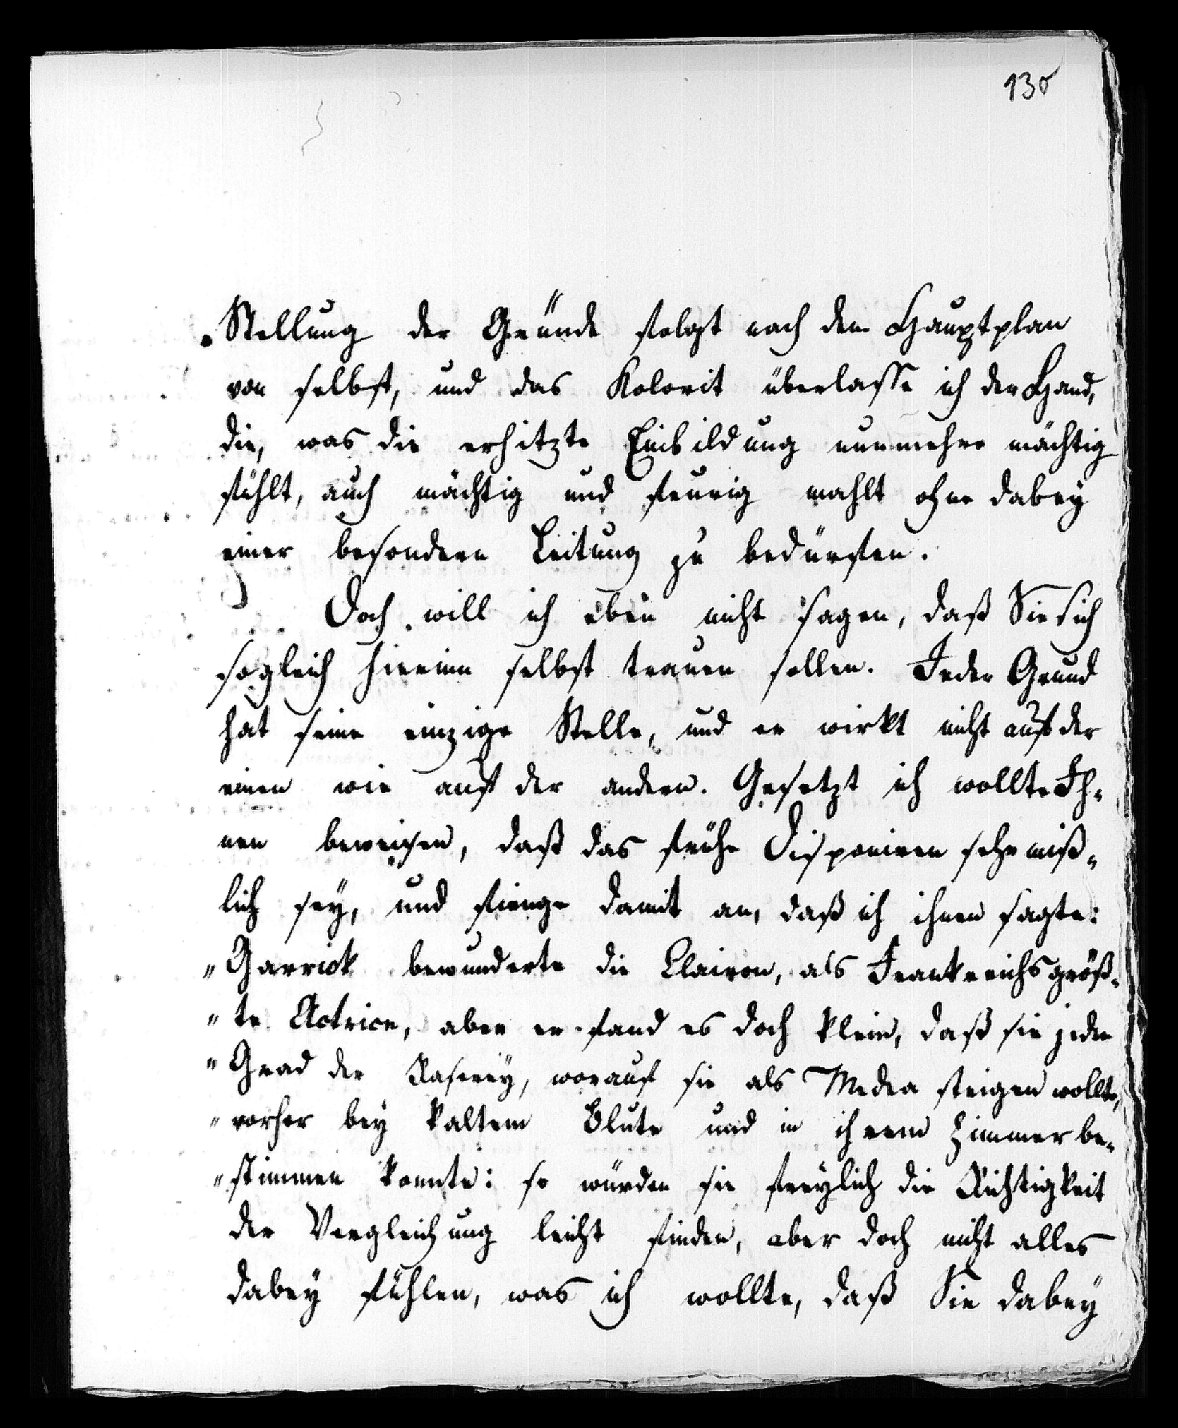 130
Stellung der Gründe folgt nach dem Hauptplan
von selbst, und das Kolorit überlasse ich der Hand,
die, was die erhitzte Einbildung nunmehro mächtig
fühlt, auch mächtig und feurig mahlt ohne dabey
einer besondern Leitung zu bedürfen.
Doch will ich eben nicht sagen, daß Sie sich
sogleich hierinn selbst trauen sollen. Jeder Grund
hat seine einzige Stelle, und er wirkt nicht auf der
einen wie auf der andern. Gesetzt ich wollte Ih-
nen beweisen, daß das frühe Disponiren sehr miß-
lich sey, und fienge damit an, daß ich ihnen sagte:
„Garrick bewunderte die Clairon, als Frankreichs größ-
„te Actrice, aber er fand es doch klein, daß sie jeden
„Grad der Raserey, worauf sie als Medea steigen wollte,
„vorher bey kaltem Blute und in ihrem Zimmer be-
„stimmen konnte: so würden sie freylich die Richtigkeit
der Vergleichung leicht finden, aber doch nicht alles
dabey fühlen, was ich wollte, daß Sie dabey